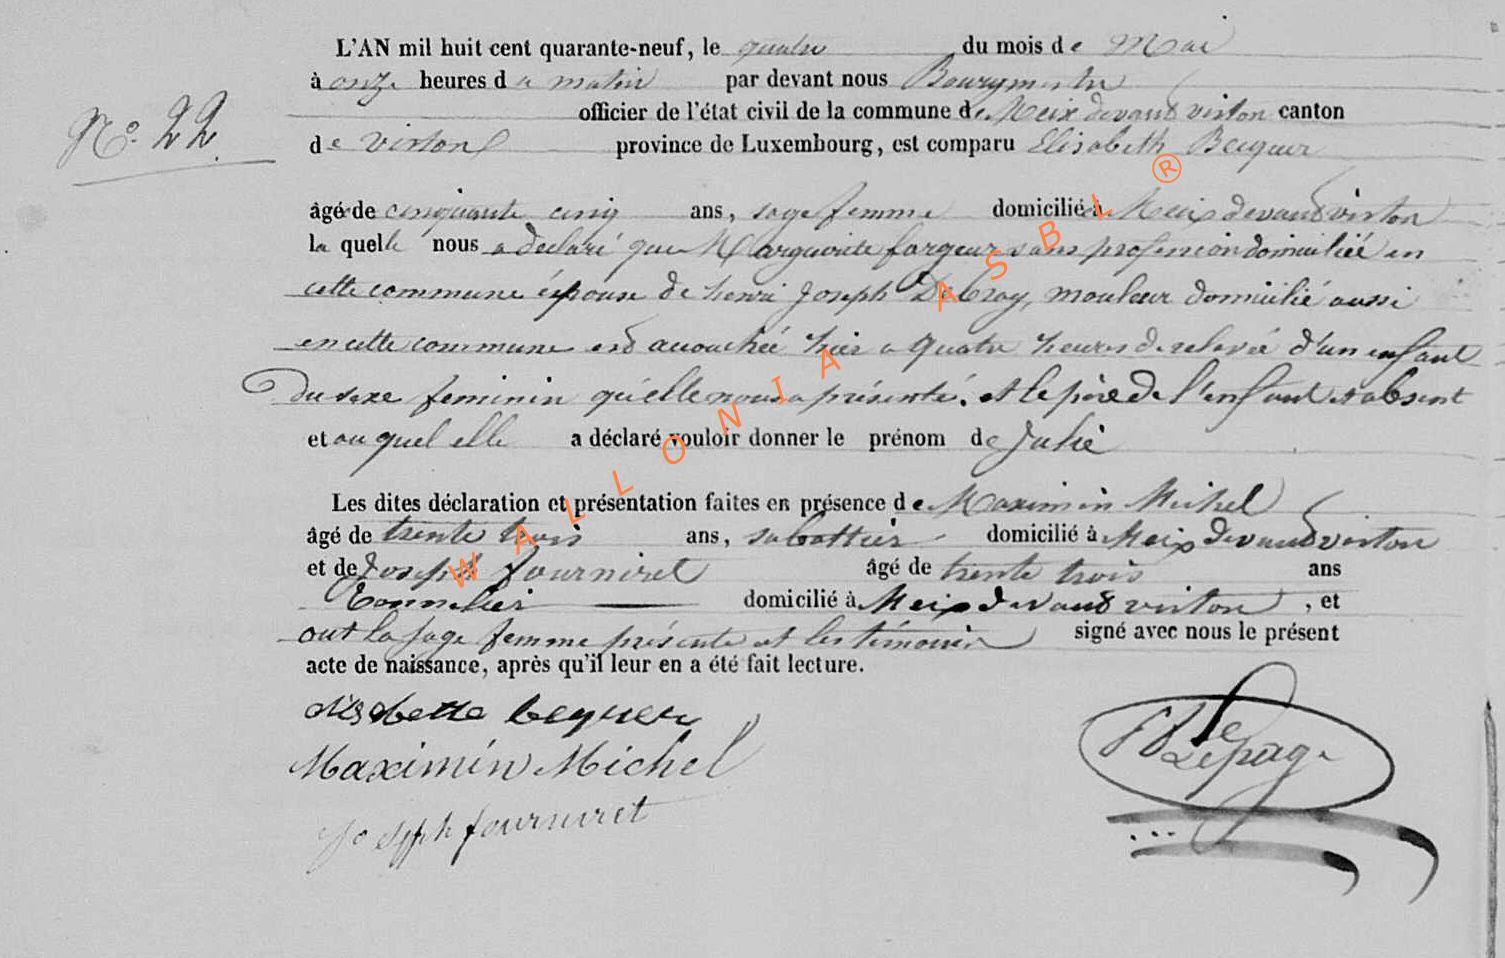 L'AN mil huit cent quarante-neuf, le quatre du mois de Mai
à onze heures du matin par devant nous Bourgmestre
officier de l'état civil de la commune de Meix devant virton canton
No. 22
de virton province de Luxembourg, est comparu Elisabeth Bequer
âgée de cinquante cinq ans, sage femme domiciliée à Meix devant virton
la quelle nous a déclaré que Marguerite fargeur sans profession domiciliée en
cette commune épouse de henri Joseph Debray, mouleur domicilié aussi
en cette commune est accouchée hier a quatre heures de relevée d'un enfant
du sexe feminin qu'elle nous a présenté. et le père de l'enfant et absent
et au quel elle a déclaré vouloir donner le prénom de Julie
Les dites déclaration et présentation faites en présence de Maximin Michel
âgé de trente trois ans, sabottier domicilié à Meix devant virton
et de Joseph fourniret âgé de trente trois ans
Tonnelier domicilié à Meix devant virton, et
ont la sage femme présente et les témoins signé avec nous le présent
acte de naissance, après qu'il leur en a été fait lecture.
bequer
Maximin Michel
Joseph fourniret
Lepage
WALLONIA ASBL ®